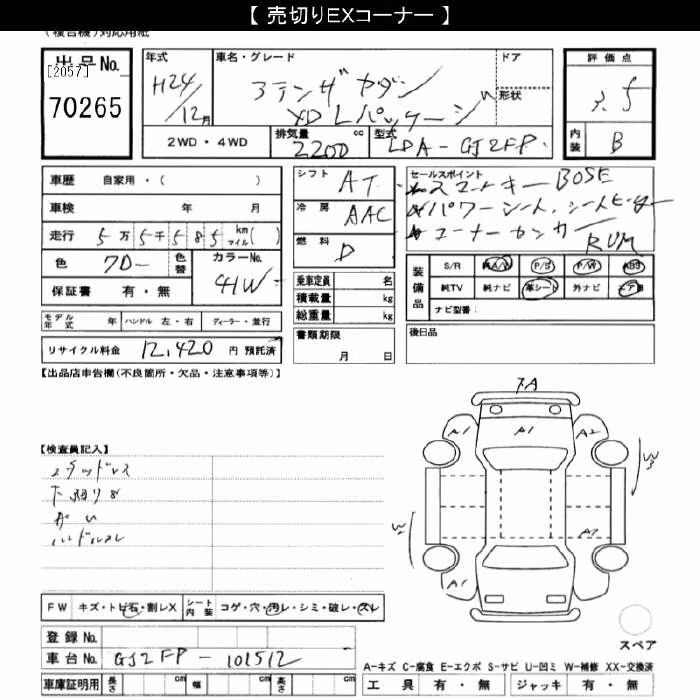 【 売切りEXコーナー 】
(複合機)対応用紙
出品No.
[2057]
70265
年式
H24/12月
車名・グレード
アテンザ セダン
XD Lパッケージ
ドア
形状
評価点
3.5
内装
B
2WD・4WD
排気量
2200
cc
型式
LDA-GJ2FP
車歴 自家用・( )
車検 年 月
走行 5万5千585 km マイル( )
色 クロー 色替
カラーNo. 41W
保証書 有・無
モデル年式 年 ハンドル 左・右 ディーラー・並行
リサイクル料金 12,420 円 預託済
シフト AT
冷房 AAC
燃料 D
乗車定員 名
積載量 kg
総重量 kg
書類期限
月 日
セールスポイント
スマートキー BOSE
パワーシート、シートヒーター
コーナーセンサー
装備品
S/R 純A/W P/S P/W ABS
純TV 純ナビ 革シート 外ナビ エアB
ナビ型番:
後日品
【出品店申告欄(不良箇所・欠品・注意事項等)】
7A
A1
A1
A2
W3
W2
A1
【検査員記入】
スタッドレス
下廻りS
ハンドルスレ
FW キズ・トビ石・割レX
シート内装 コゲ・穴・汚レ・シミ・破レ・スレ
登録No.
車台No. GJ2FP-101512
車庫証明用 長さ cm 幅 cm 高さ cm
スペア
A-キズ C-腐食 E-エクボ S-サビ U-凹ミ W-補修 XX-交換済
工具 有・無 ジャッキ 有・無